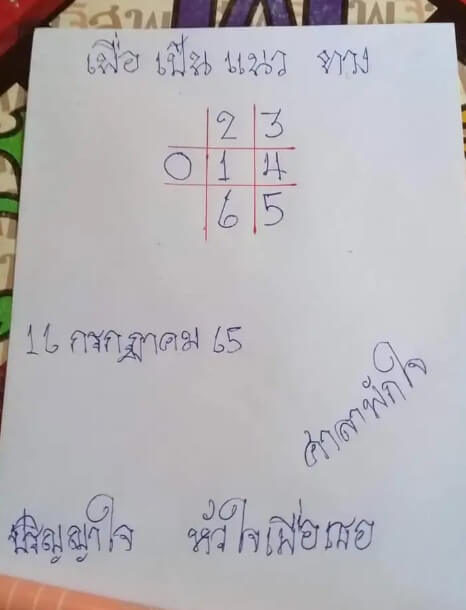 เพื่อ เป็น แนว ทาง
2 3
0 1 4
6 5
16 กรกฎาคม 65
ศาลาพักใจ
ปริญญาใจ หัวใจเพื่อเธอ